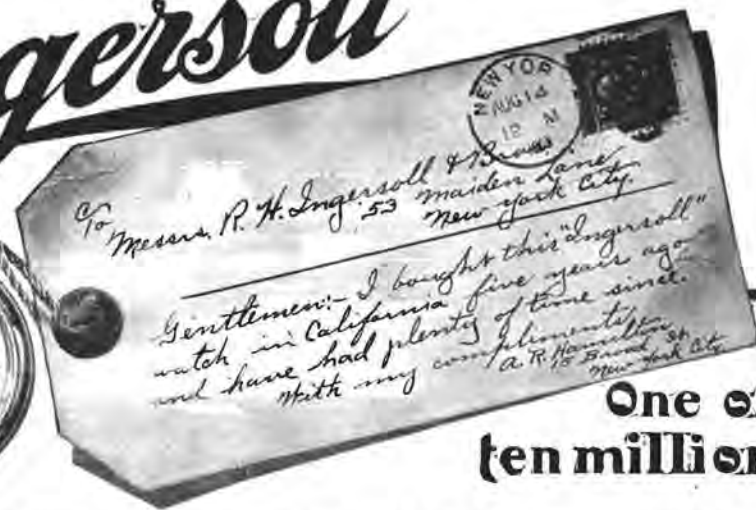 gersoll
NEW YOR
AUG 14
12 M
To
Messrs. R. H. Ingersoll & Bro.
53 Maiden Lane
New York City.
Gentlemen:- I bought this "Ingersoll"
watch in California five years ago
and have had plenty of time since.
With my compliments,
A. R. Hamilton,
15 Broad St.
New York City
One of
ten million